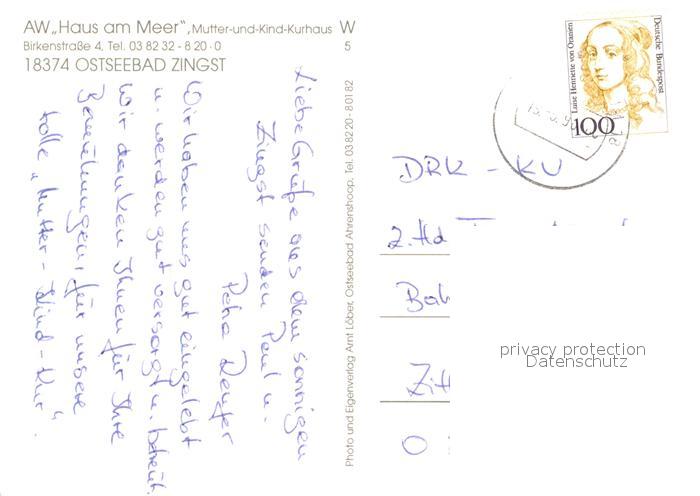 AW „Haus am Meer“, Mutter-und-Kind-Kurhaus W
Birkenstraße 4, Tel. 03 82 32 - 8 20 - 0 5
18374 OSTSEEBAD ZINGST
Liebe Grüße aus dem sonnigen
Zingst senden Paul u.
Petra
Wir haben uns gut eingelebt
u. werden gut versorgt u. betreut.
Wir danken Ihnen für Ihre
Bemühungen, für unsere
tolle „Mutter-Kind-Kur“.
Photo und Eigenverlag Arnt Löber, Ostseebad Ahrenshoop, Tel. 03 82 20 - 8 01 82
Luise Henriette von Oranien
Deutsche Bundespost
100
DRK - KV
z. Hd
Bah
Zitt
O
privacy protection
Datenschutz